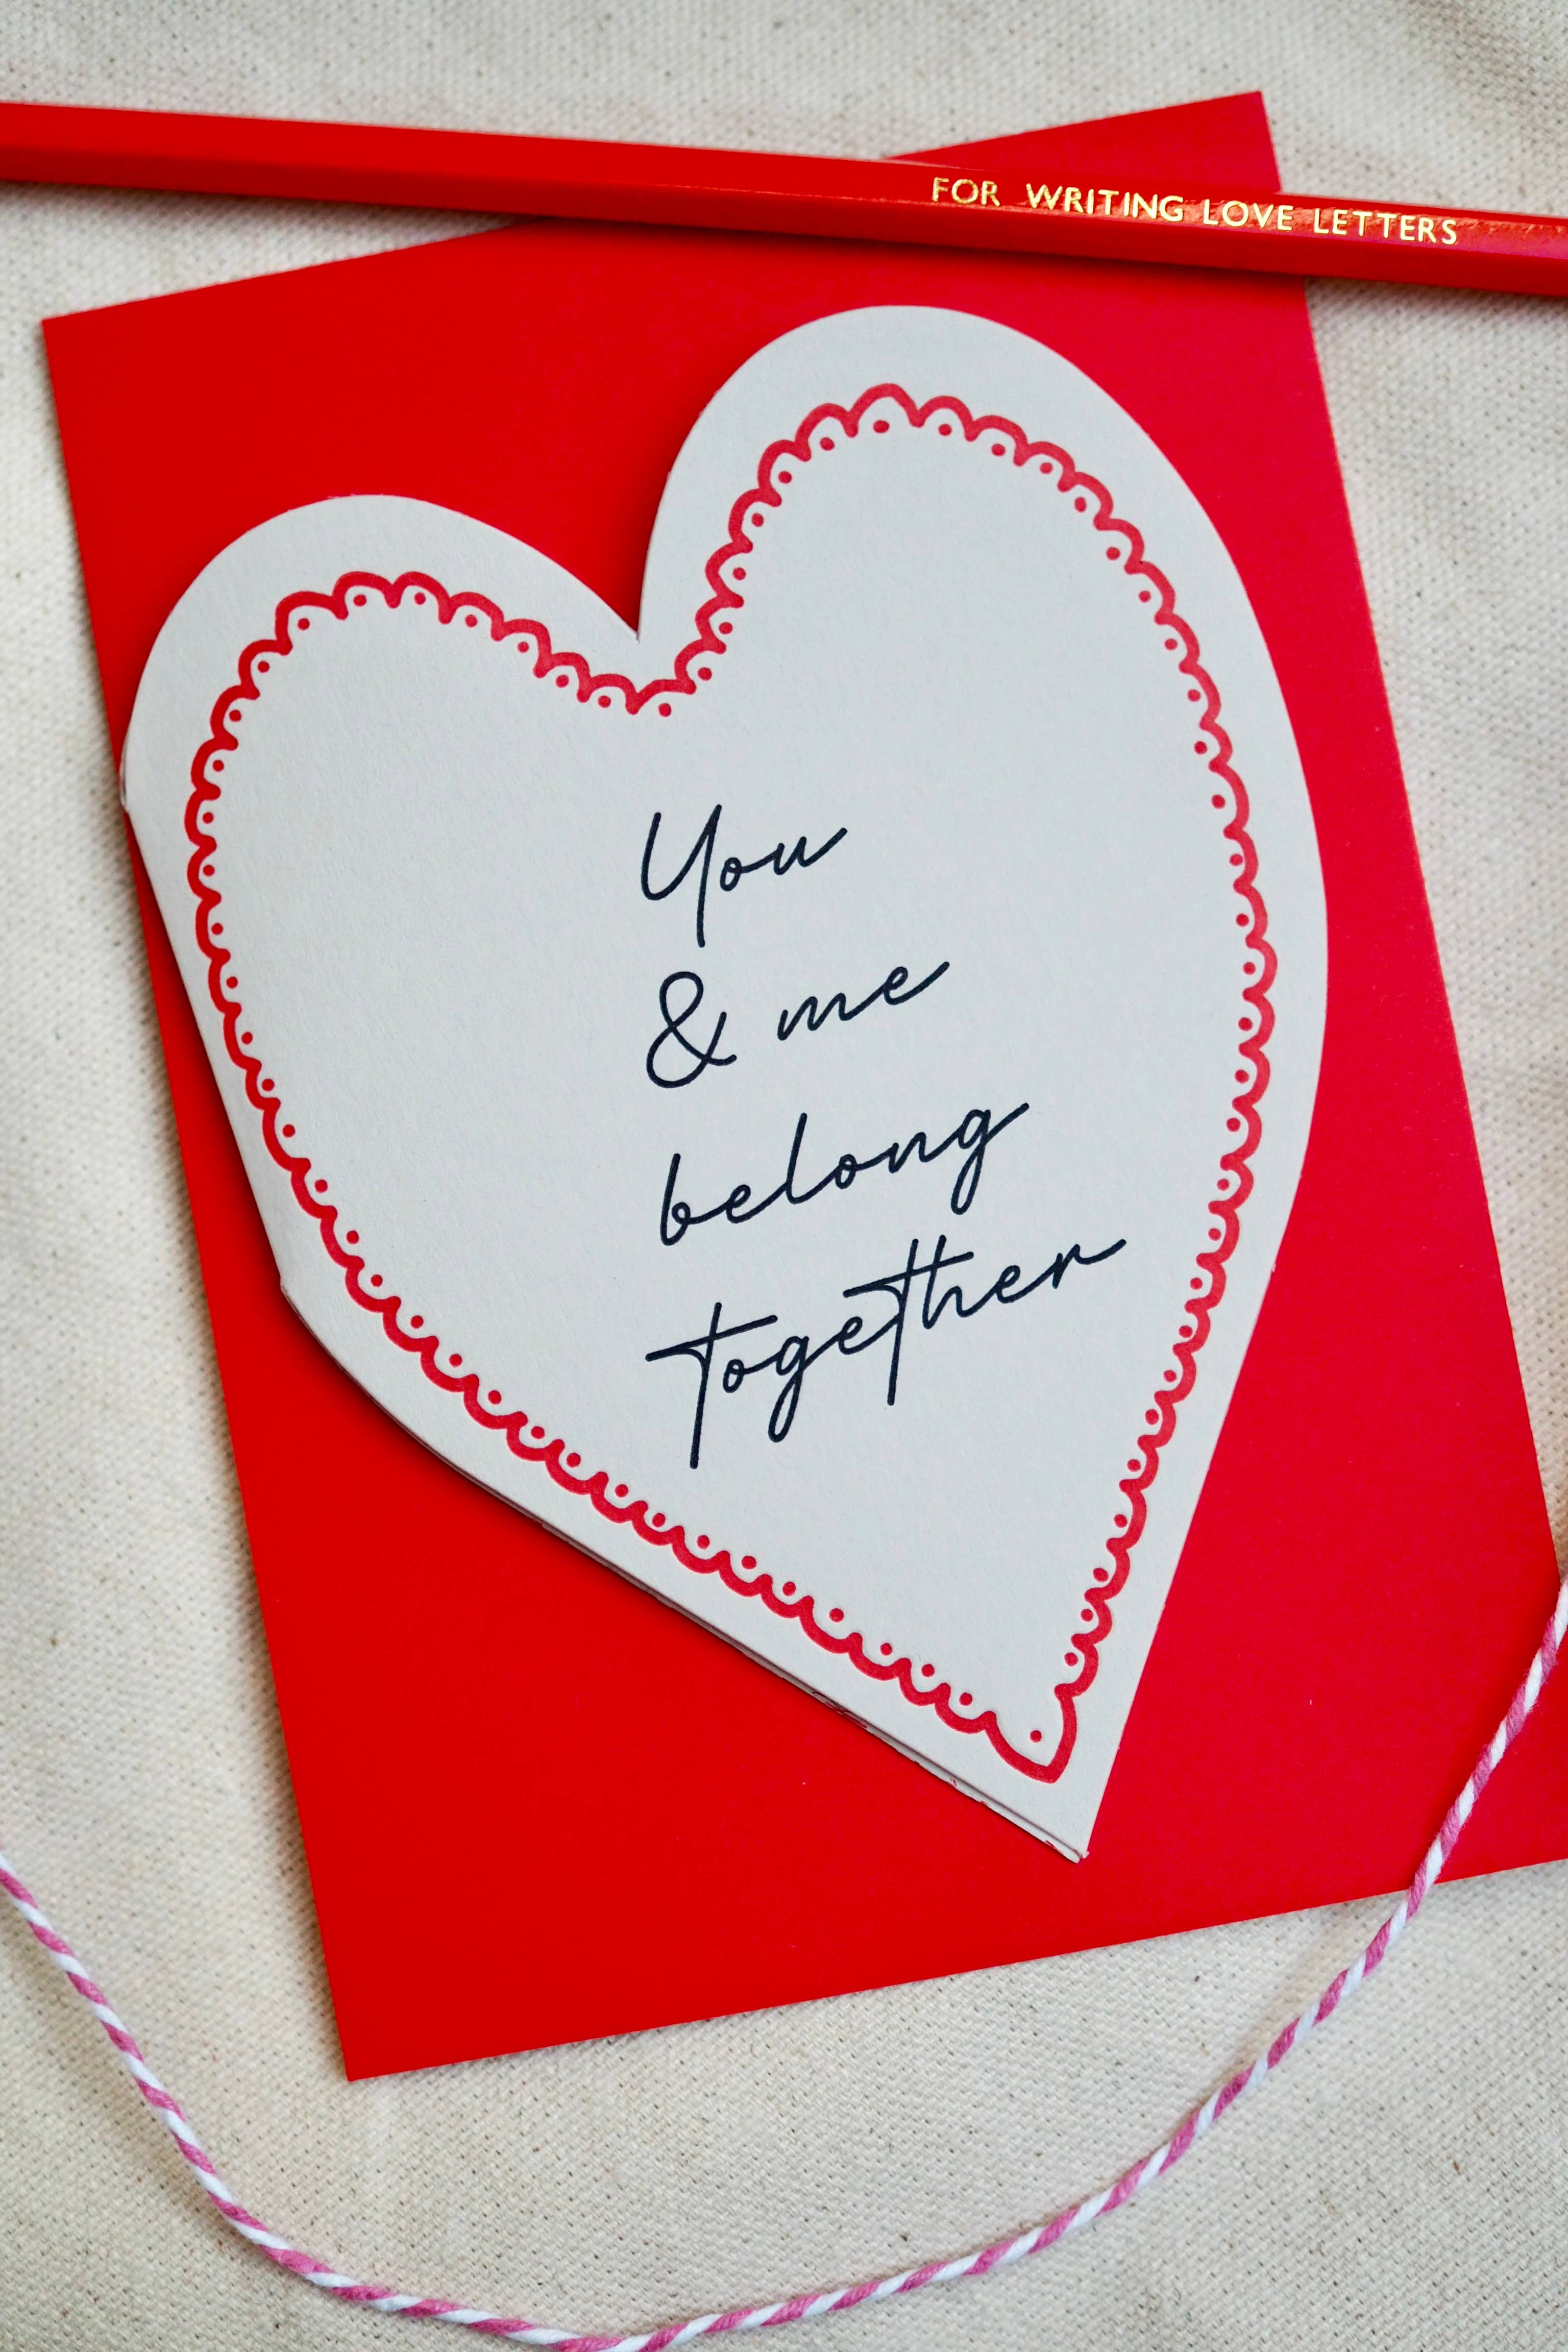 FOR WRITING LOVE LETTERS
You
& me
belong
together